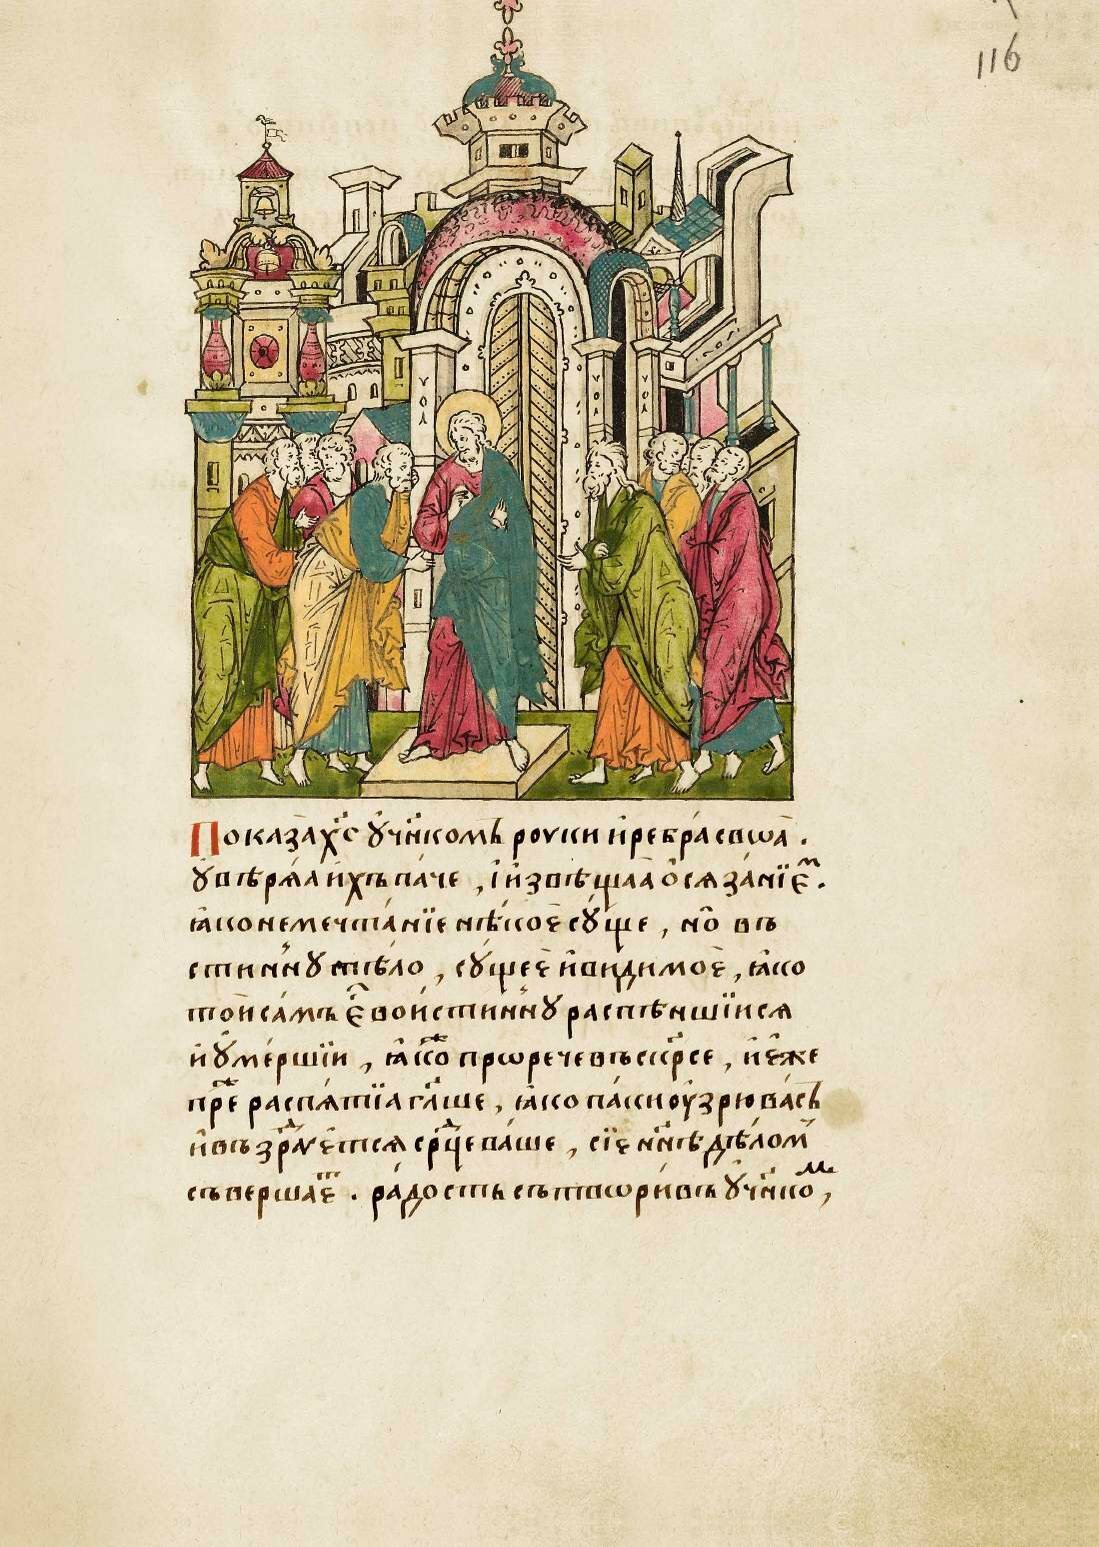 116
Показа х҃с ѹ҆чн҃комъ роуки и҆ ребра своѧ̀ .
ѹ҆вѣрѧ́ѧ и҆хъ па́че , і҆ и҆звѣща́ѧ ѡ҆сѧза́нїе҆м .
ꙗ҆́ко не мечта́нїе нѣ́кое сѹ́ще , но̀ въ
стинн́ѹ тѣ́ло , сѹ́щее и҆ ви́димое , ꙗ҆́ко
то́й са́мъ є҆с вои́стиннѹ распе́ншїисѧ
и҆ ѹ҆ме́ршїи , ꙗ҆́коже прѡрече въ скр҃се , и҆ е҆́же
пре́ж распѧ́тїѧ гл҃ше , ꙗ҆́ко па́ки оу҆зрю ва́съ
и҆ въ зра́дꙋетсѧ срⷣце ва́ше , сїе нн҃ѣ дѣ́лом
съверша́ет . ра́дость сътвори́въ ѹ҆чн҃ком ,